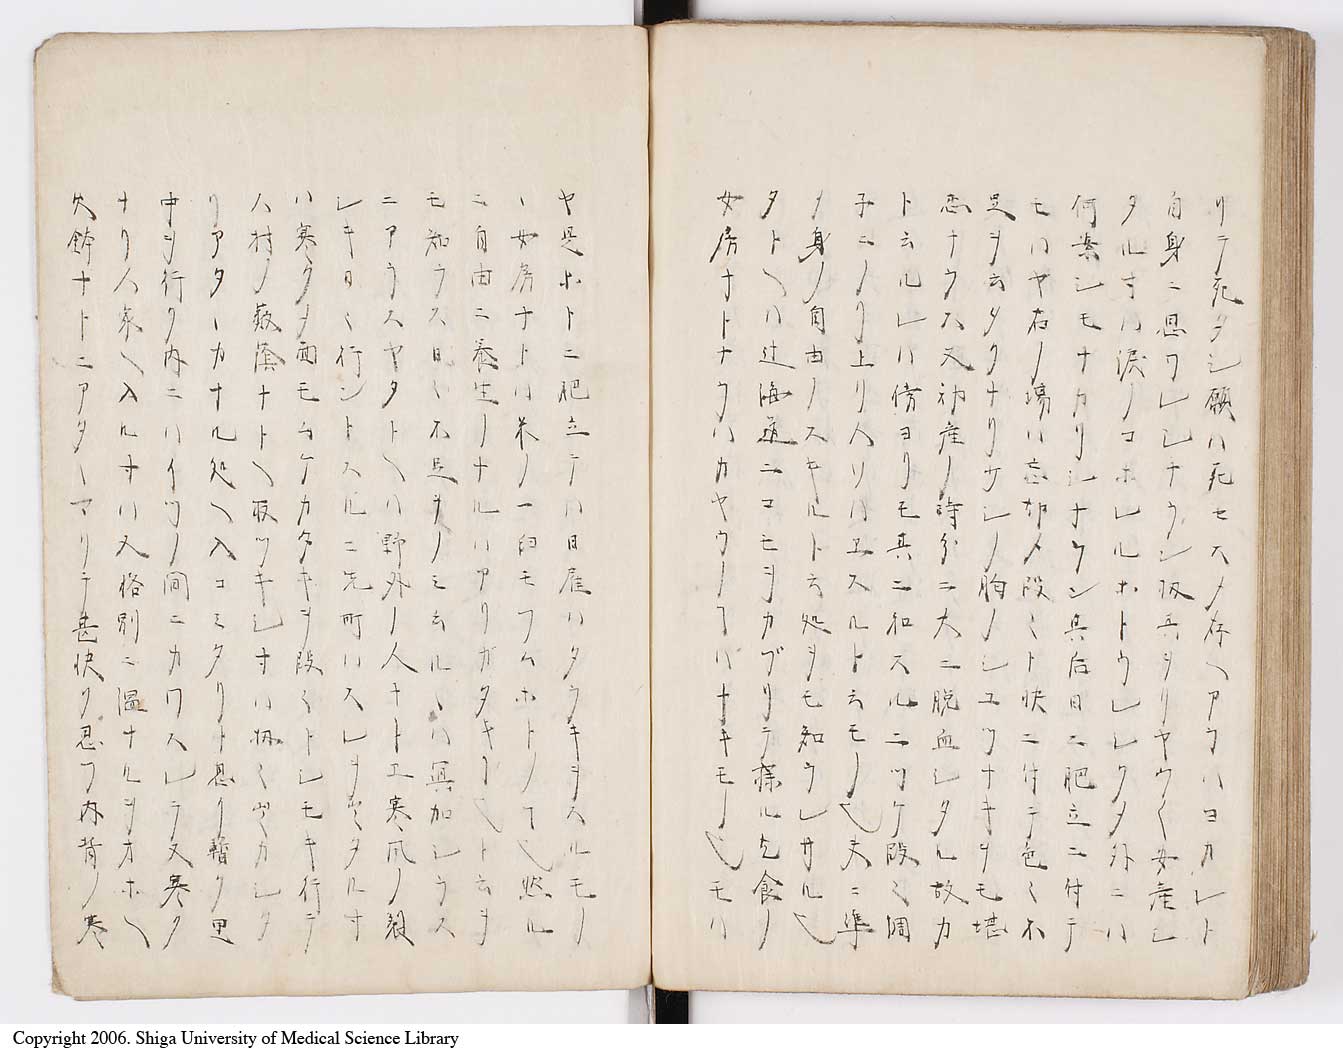 リテ死タシ願ハ死セス乄存ヘアラハヨカレト
自身ニ思ワレシナラン扨其ヨリヤウ〱女産シ
タル寸ハ涙ノコホレルホトウレレクタ外ニハ
何楽シモナカリシナラン其后日ニ肥立ニ付テ
モハヤ右ノ場ハ忘却乄段々ト快ニ付テ色々不
足ヲ云タクナリサシノ胸ノシユツナキヲモ堪
忍ナラス又初産ノ時分ニ大ニ脱血シタル故カ
ト云ルレハ傍ヨリモ其ニ和スルニツケ段々調
子ニノリ上リ人ソハエスルト云モノ也夫ニ準
乄身ノ自由ノスキルト云処ヲモ知ラレサル也
タトヘハ辻海道ニコモヲカブリテ様ル乞食ノ
女房ナトナラハカヤウノ﹅ハナキモノ也モハ
ヤ足ホトニ肥立テハ日雇ハタラキヲスルモノ
ヽ女房ナトハ米ノ一臼モフムホトノ﹅也然ル
ニ自由ニ養生ノナルハアリガタキ﹅也ト云ヲ
モ知ラス日々不足ヲノミ云ルヽハ冥加シラス
ニアラスヤタトヘハ野外ノ人ナト工寒風ノ殺
レキ日々行ントスルニ先町ハスレヲ出タル寸
ハ寒クタ面モムケカタキヲ段々トレモキ行テ
人村ノ薮蔭ナトヘ取ツキシ寸ハ扨々出カシタ
リアターカナル処ヘ入コミタリト思リ暫ク里
中ヲ行ク内ニハイツノ間ニカワスレテ又寒ク
ナリ人家ヘ入ル寸ハ又格別ニ温ナルヲオホヘ
火鉢ナトニアターマリテ甚快ク思フ内背ノ寒
Copyright 2006. Shiga University of Medical Science Library